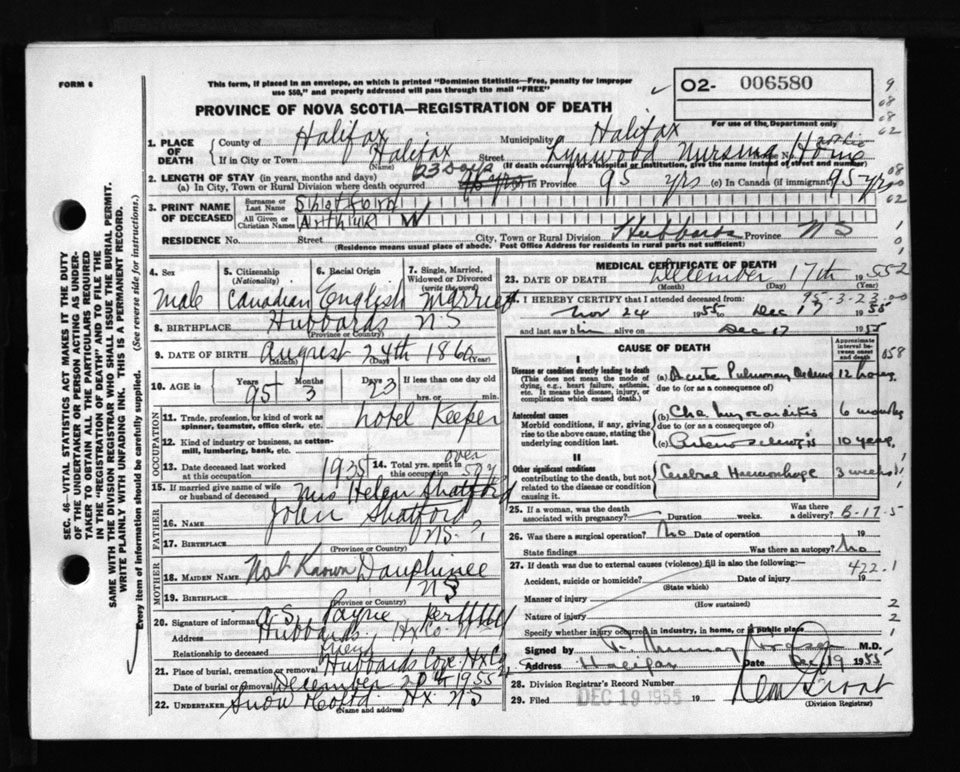 FORM 6
This form, if placed in an envelope, on which is printed "Dominion Statistics—Free, penalty for improper
use $50," and properly addressed will pass through the mail "FREE"
02- 006580
PROVINCE OF NOVA SCOTIA—REGISTRATION OF DEATH
For use of the Department only
1. PLACE OF DEATH
County of Halifax Municipality Halifax
If in City or Town Halifax Street Lynwood Nursing Home
(If death occurred in a hospital or institution, give the name instead of street and number)
2. LENGTH OF STAY (in years, months and days)
(a) In City, Town or Rural Division where death occurred 23 days in Province 95 yrs (c) In Canada (if immigrant) 95 yrs
3. PRINT NAME OF DECEASED
Surname or Last Name Shatford
All Given or Christian Names Arthur W
RESIDENCE No. Street City, Town or Rural Division Hubbards Province N S
(Residence means usual place of abode. Post Office Address for residents in rural parts not sufficient)
4. Sex Male
5. Citizenship (Nationality) Canadian
6. Racial Origin English
7. Single, Married, Widowed or Divorced (write the word) Married
8. BIRTHPLACE Hubbards N S
(Province or Country)
9. DATE OF BIRTH August 24th 1860
(Month) (Day) (Year)
10. AGE in Years 95 Months 3 Days 23 If less than one day old
hrs. or min.
OCCUPATION
11. Trade, profession, or kind of work as
spinner, teamster, office clerk, etc. Hotel Keeper
12. Kind of industry or business, as cotton-
mill, lumbering, bank, etc.
13. Date deceased last worked
at this occupation 1935
14. Total yrs. spent in
this occupation over 50 y
15. If married give name of wife
or husband of deceased Mrs Helen Shatford
FATHER
16. NAME John Shatford
17. BIRTHPLACE N S ?
(Province or Country)
MOTHER
18. MAIDEN NAME Not Known Dauphinee
19. BIRTHPLACE N S
(Province or Country)
20. Signature of informant A S. Payne per
Address Hubbards, Hx Co N S
Relationship to deceased friend
21. Place of burial, cremation or removal Hubbards Cove Hx Co
Date of burial or removal December 20th 1955
22. UNDERTAKER Snow Co Ltd Hx N S
(Name and address)
MEDICAL CERTIFICATE OF DEATH
23. DATE OF DEATH December 17th 1955
(Month) (Day) (Year)
95-3-23-00
I HEREBY CERTIFY that I attended deceased from:
Nov 24 1955 to Dec 17 1955
and last saw him alive on Dec 17 1955
CAUSE OF DEATH
Approximate interval between onset and death
I
Disease or condition directly leading to death
(This does not mean the mode of dying, e.g., heart failure, asthenia, etc. It means the disease, injury, or complication which caused death.)
(a) Acute Pulmonary Oedema 12 hours
due to (or as a consequence of)
Antecedent causes
Morbid conditions, if any, giving rise to the above cause, stating the underlying condition last.
(b) Chr. Myocarditis 6 months
due to (or as a consequence of)
(c) Arteriosclerosis 10 years
II
Other significant conditions
contributing to the death, but not related to the disease or condition causing it.
Cerebral Haemorrhage 3 weeks
25. If a woman, was the death
associated with pregnancy? Duration weeks. Was there a delivery? B-17-5
26. Was there a surgical operation? No Date of operation 19
State findings Was there an autopsy? No
27. If death was due to external causes (violence) fill in also the following:—
422.1
Accident, suicide or homicide? Date of injury 19
(State which)
Manner of injury
(How sustained)
Nature of injury
Specify whether injury occurred in industry, in home, or in public place
Signed by M.D.
Address Halifax Date Dec 19 1955
28. Division Registrar's Record Number
29. Filed DEC 19 1955 19
(Division Registrar)
SEC. 46—VITAL STATISTICS ACT MAKES IT THE DUTY
OF THE UNDERTAKER OR PERSON ACTING AS UNDER-
TAKER TO OBTAIN ALL THE PARTICULARS REQUIRED
IN THE "REGISTRATION OF DEATH" AND TO FILE THE
SAME WITH THE DIVISION REGISTRAR WHO SHALL ISSUE THE BURIAL PERMIT.
WRITE PLAINLY WITH UNFADING INK. THIS IS A PERMANENT RECORD.
Every item of information should be carefully supplied. (See reverse side for instructions.)